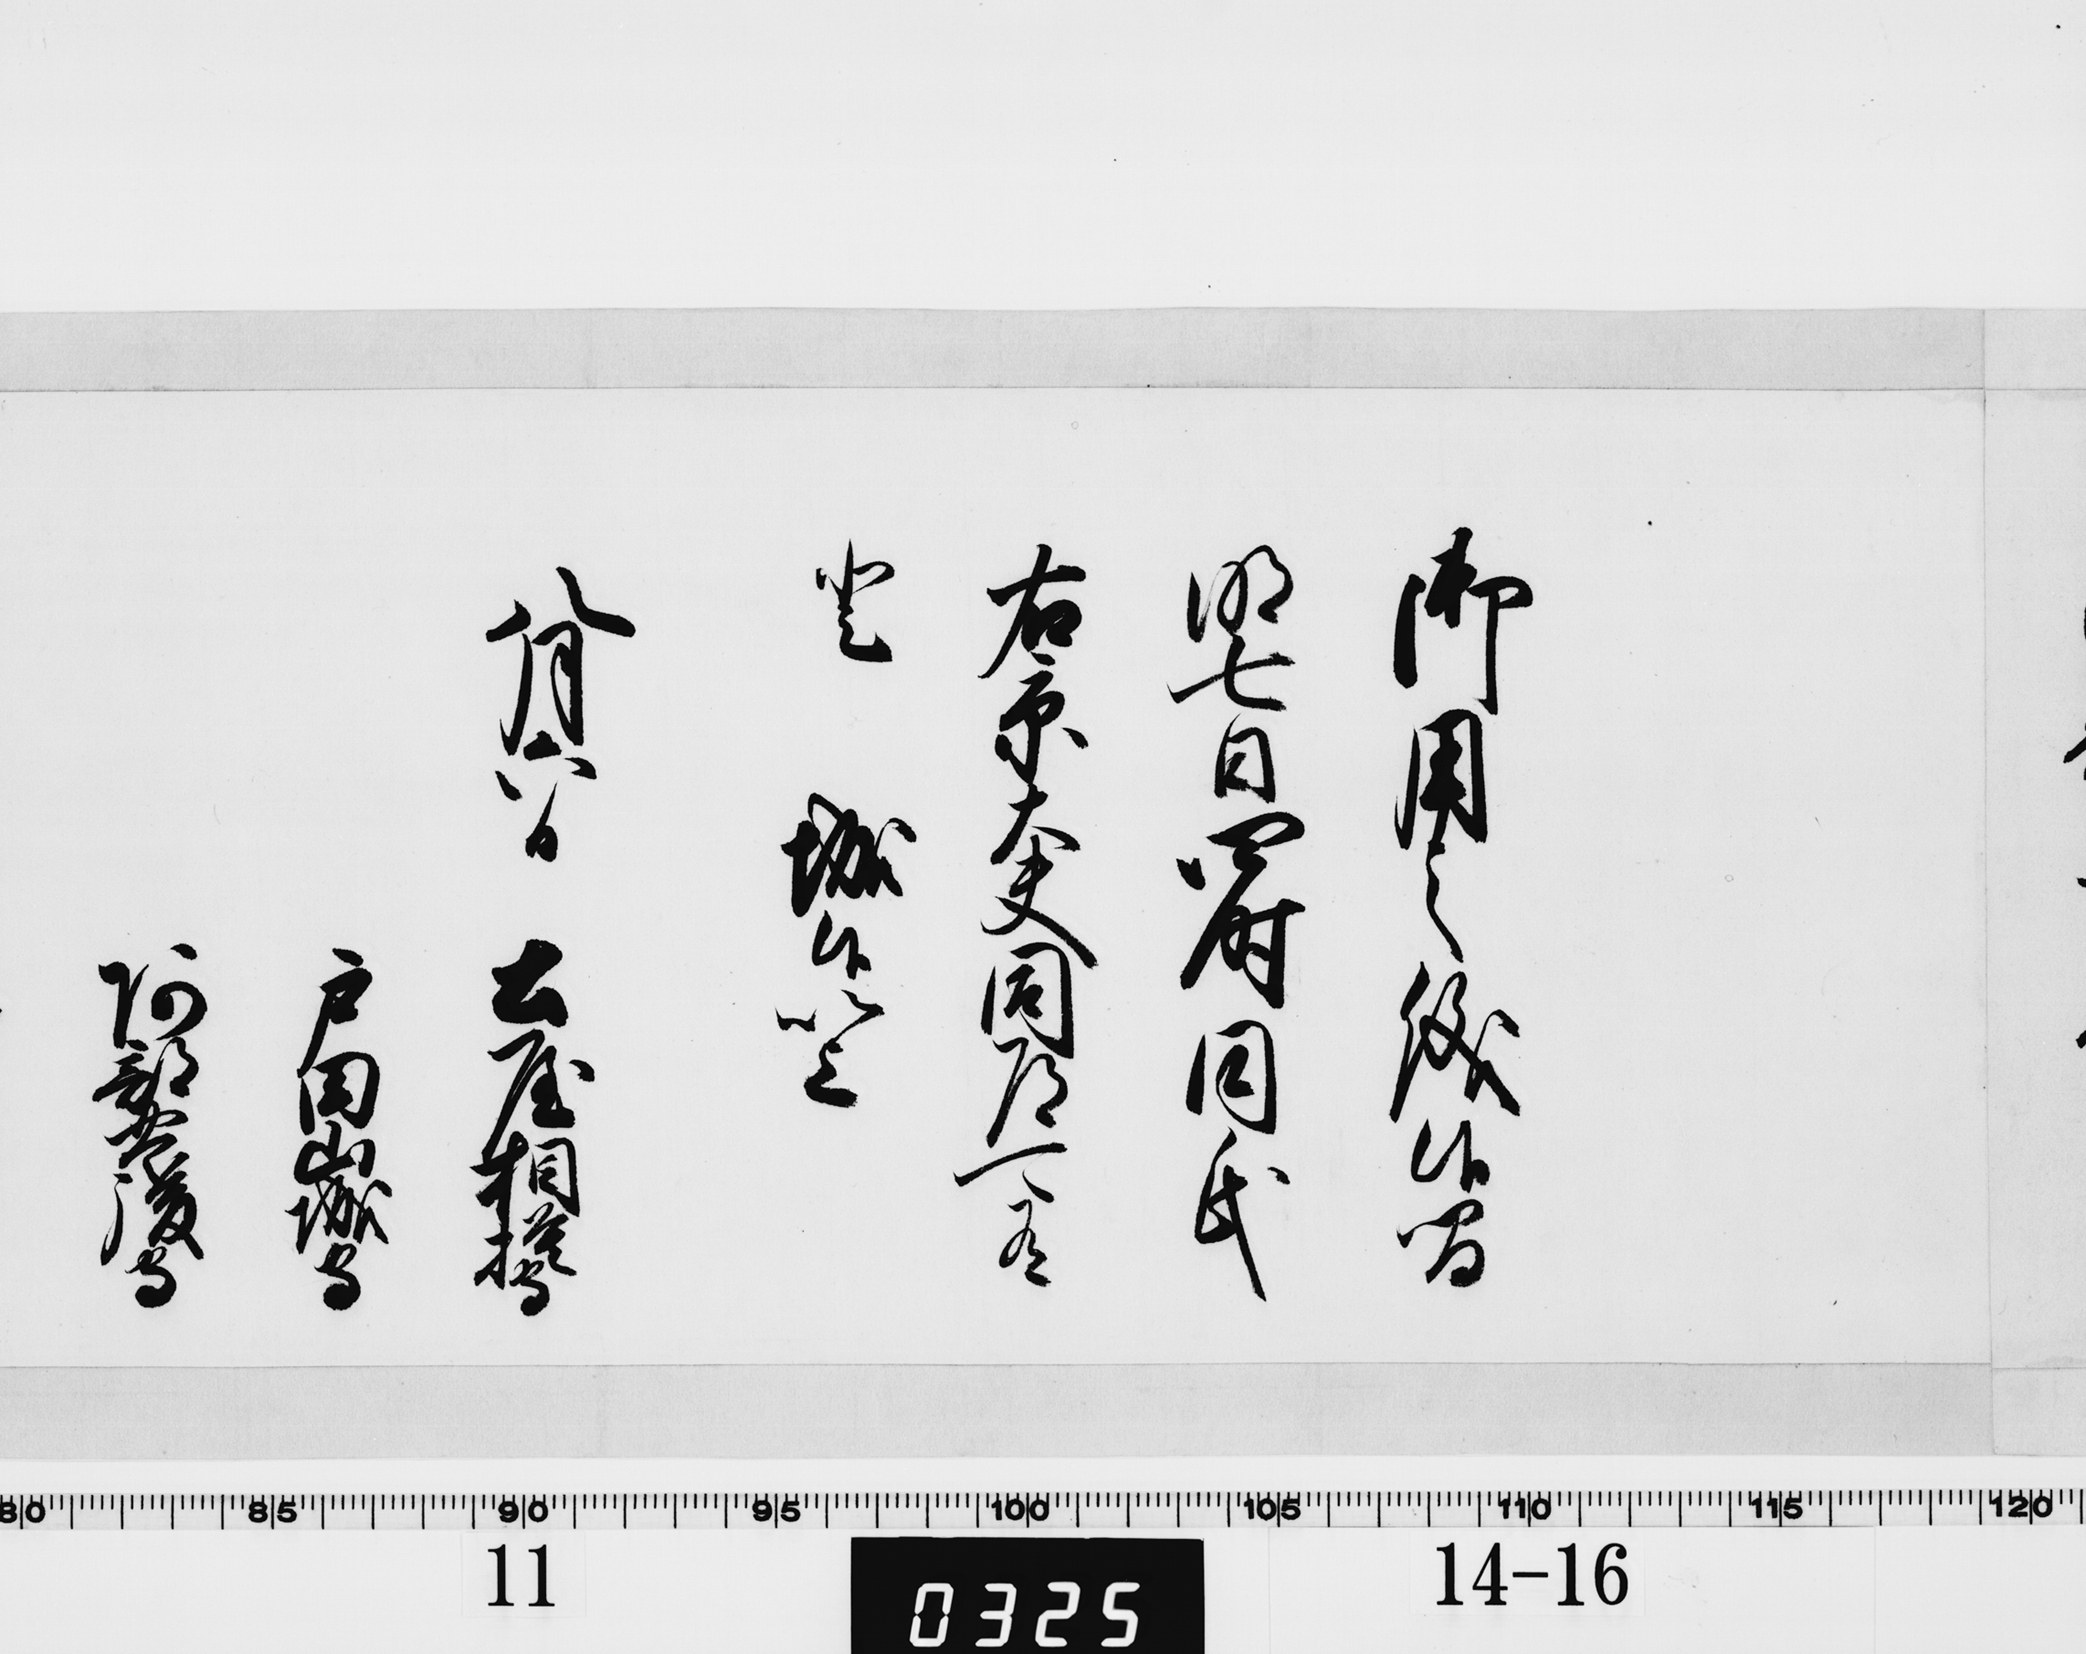 御用之儀候間
明七日四時同氏
右京大夫同道可有
登 城候以上
八月六日 土屋相模守
戸田山城守
阿部豊後守
80 85 90 95 100 105 110 115 120
11
0325
14-16